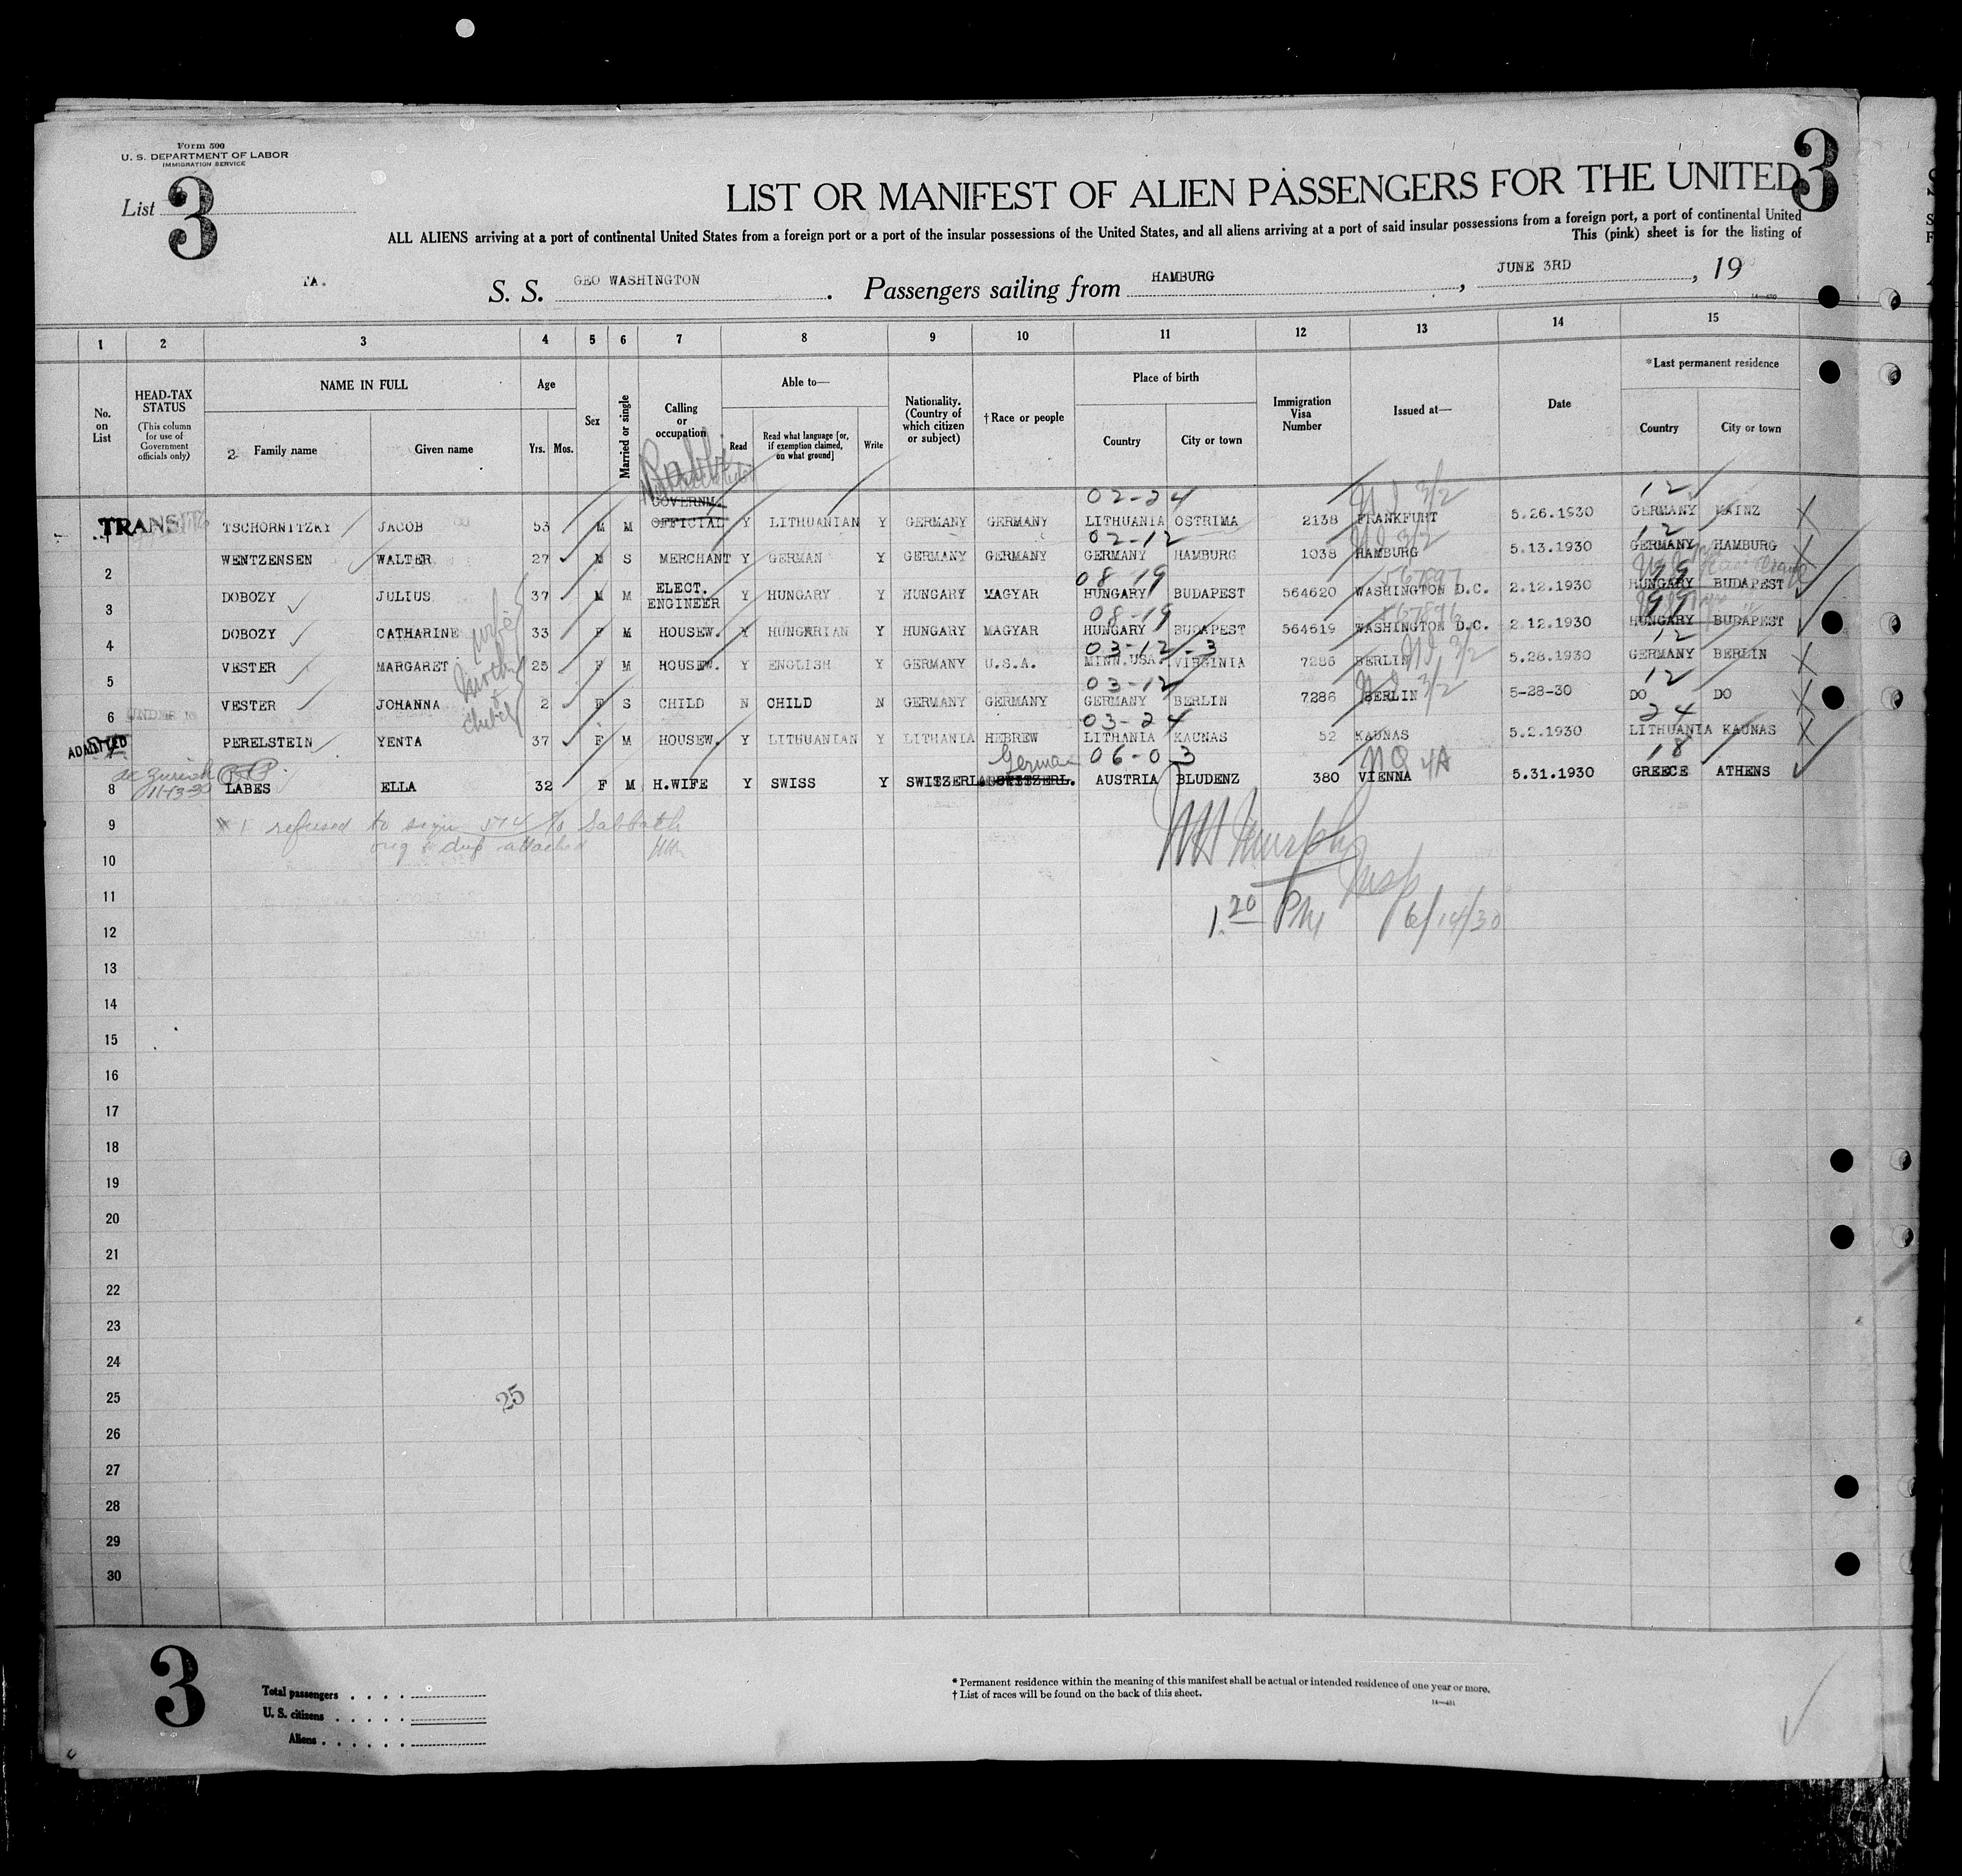 Form 500
U. S. DEPARTMENT OF LABOR
IMMIGRATION SERVICE
List 3
3
LIST OR MANIFEST OF ALIEN PASSENGERS FOR THE UNITED
ALL ALIENS arriving at a port of continental United States from a foreign port or a port of the insular possessions of the United States, and all aliens arriving at a port of said insular possessions from a foreign port, a port of continental United
This (pink) sheet is for the listing of
S. S. GEO WASHINGTON. Passengers sailing from HAMBURG, JUNE 3RD, 19
1 2 3 4 5 6 7 8 9 10 11 12 13 14 15
No. on List
HEAD-TAX STATUS (This column for use of Government officials only)
NAME IN FULL
Family name Given name
Age
Yrs. Mos.
Sex
Married or single
Calling or occupation
Able to—
Read Read what language [or, if exemption claimed, on what ground] Write
Nationality. (Country of which citizen or subject)
†Race or people
Place of birth
Country City or town
Immigration Visa Number
Issued at—
Date
*Last permanent residence
Country City or town
02-24 12
TRANSIT TSCHORNITZKY JACOB 53 M M GOVERNM. OFFICIAL Y LITHUANIAN Y GERMANY GERMANY LITHUANIA OSTRIMA 2138 FRANKFURT 5.26.1930 GERMANY MAINZ
02-12 12
2 WENTZENSEN WALTER 27 M S MERCHANT Y GERMAN Y GERMANY GERMANY GERMANY HAMBURG 1038 HAMBURG 5.13.1930 GERMANY HAMBURG
08-19 99
3 DOBOZY JULIUS 37 M M ELECT. ENGINEER Y HUNGARY Y HUNGARY MAGYAR HUNGARY BUDAPEST 564620 WASHINGTON D.C. 2.12.1930 HUNGARY BUDAPEST
wife
08-19 99
4 DOBOZY CATHARINE 33 F M HOUSEW. Y HUNGARIAN Y HUNGARY MAGYAR HUNGARY BUDAPEST 564619 WASHINGTON D.C. 2.12.1930 HUNGARY BUDAPEST
03-12-3 12
5 VESTER MARGARET 25 F M HOUSEW. Y ENGLISH Y GERMANY U.S.A. MINN.USA. VIRGINIA 7286 BERLIN 5.28.1930 GERMANY BERLIN
mother & child
03-12 12
6 UNDER 16 VESTER JOHANNA 2 F S CHILD N CHILD N GERMANY GERMANY GERMANY BERLIN 7286 BERLIN 5-28-30 DO DO
03-24 24
ADMITTED PERELSTEIN YENTA 37 F M HOUSEW. Y LITHUANIAN Y LITHANIA HEBREW LITHANIA KAUNAS 52 KAUNAS 5.2.1930 LITHUANIA KAUNAS
German 06-03 NQ 4A 18
8 LABES ELLA 32 F M H.WIFE Y SWISS Y SWITZERL. SWITZERL. AUSTRIA BLUDENZ 380 VIENNA 5.31.1930 GREECE ATHENS
9 #1 refused to sign 514 Sabbath
orig & dup attached
10
Murphy
Insp
11
1.20 PM 6/14/30
12
13
14
15
16
17
18
19
20
21
22
23
24
25 25
26
27
28
29
30
3
Total passengers
U. S. citizens
Aliens
* Permanent residence within the meaning of this manifest shall be actual or intended residence of one year or more.
† List of races will be found on the back of this sheet.